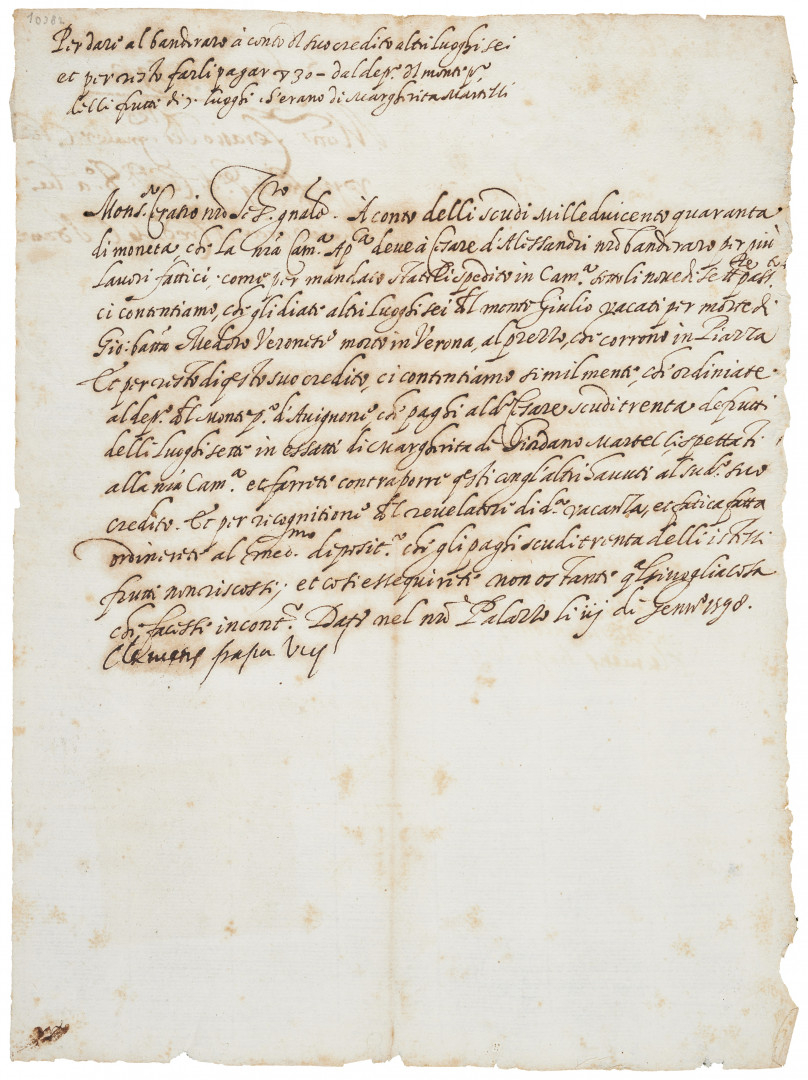 10382
Per dare al bandiraro à conto di suo credito altri luoghi sei
et per resto farli pagar ∇30 - dal dep.o del monte p.o
delli frutti di 7 luoghi ch'erano di Margherita Martelli
Mons.r Eratio nr̃o Thes.ro gnãle. A conto delli scudi Mille ducento quaranta
di moneta, che la nr̃a Cam.a Ap.ca deve à Cesare d'Alessandri nr̃o bandiraro per più
lavori fattici, come per mandato speditto in Cam.a sotto li nove di Sett.re pass.to
ci contentiamo, che gli diate altri luoghi sei del monte Giulio vacati per morte di
Gio: batt.a Medoro Veronese morto in Verona, al prezzo, che corrono in Piazza
Et per resto di questo suo credito, ci contentiamo similmente, che ordiniate
al dep.o del Monte p.o d'Avignone che paghi al d.o Cesare scudi trenta de frutti
delli luoghi sette inessatti di Margherita di Giordano Martelli, spettati
alla nr̃a Cam.a et farrete contraporre questi con gl'altri havuti al sud.o suo
credito. Et per recognitione del revelatore di d.a vacanza, et fatica fatta
ordinerete al med.mo deposit.o che gli paghi scudi trenta delli istessi
frutti non riscossi; et cosi essequirete non ostante qualsivoglia cosa
che facesse incont.o Dato nel nr̃o Palazzo li iij di Genn.o 1598.
Clemens papa viij